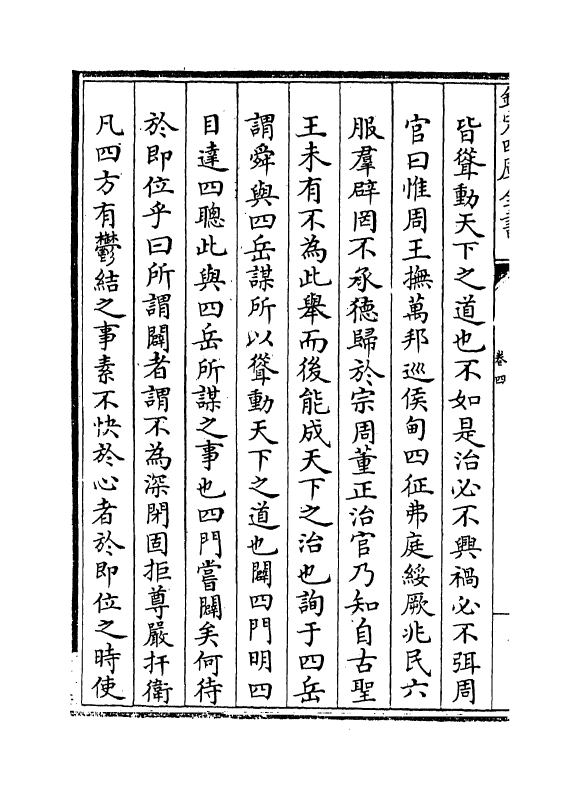 欽定四庫全書
卷四
皆聳動天下之道也不如是治必不興禍必不弭周
官曰惟周王撫萬邦巡侯甸四征弗庭綏厥兆民六
服羣辟罔不承德歸於宗周董正治官乃知自古聖
王未有不為此舉而後能成天下之治也詢于四岳
謂舜與四岳謀所以聳動天下之道也闢四門明四
目達四聰此與四岳所謀之事也四門嘗闢矣何待
於即位乎曰所謂闢者謂不為深閉固拒尊嚴扞衛
凡四方有鬱結之事素不快於心者於即位之時使